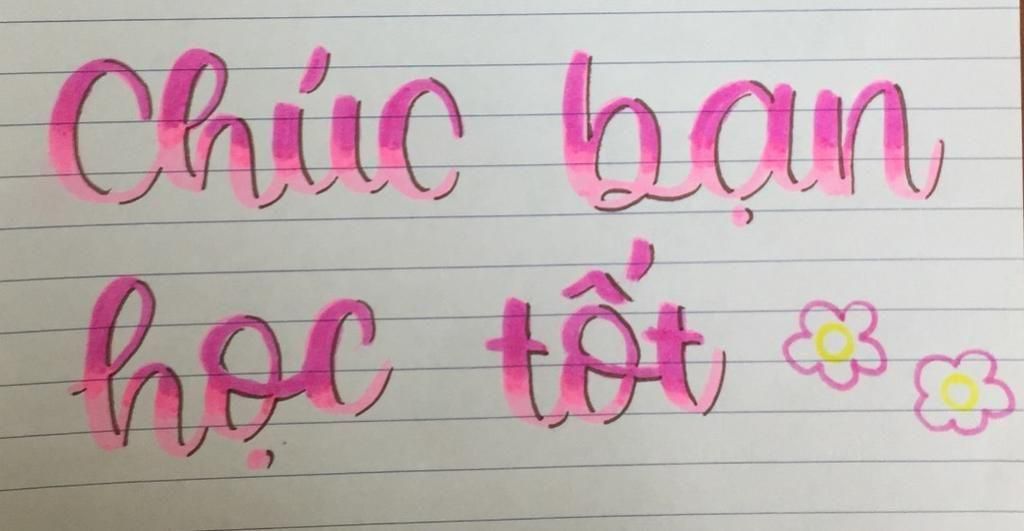 Chúc bạn
học tốt